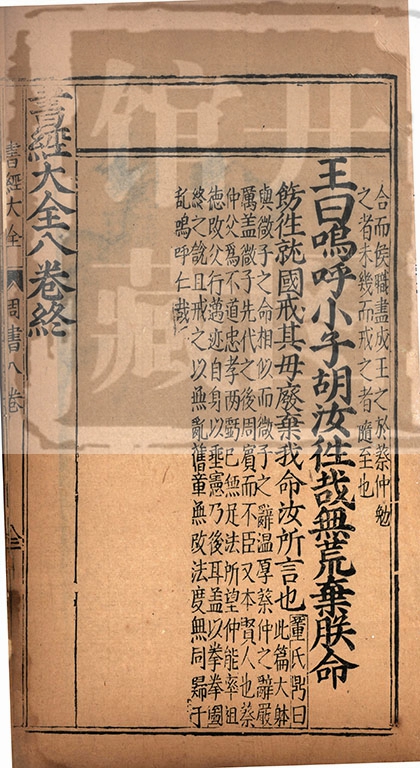 合而侯職盡成王之於蔡仲勉
之者未幾而戒之者隨至也
王曰嗚呼小子胡汝往哉無荒棄朕命
飭往就國戒其毋廢棄我命汝所言也
董氏鼎曰
此篇大躰
與微子之命相似而微子之辭温厚蔡仲之辭嚴
厲盖微子先代之後周賓而不臣又本賢人也蔡
仲父為不道忠孝兩虧已無足法所望仲能率祖
徳改父行邁迹自身以垂憲乃後耳盖以拳拳國
終之說且戒之以無亂舊章無改法度無同歸于
亂嗚呼仁哉
書經大全八卷終
書經大全 八 周書八卷
馆藏